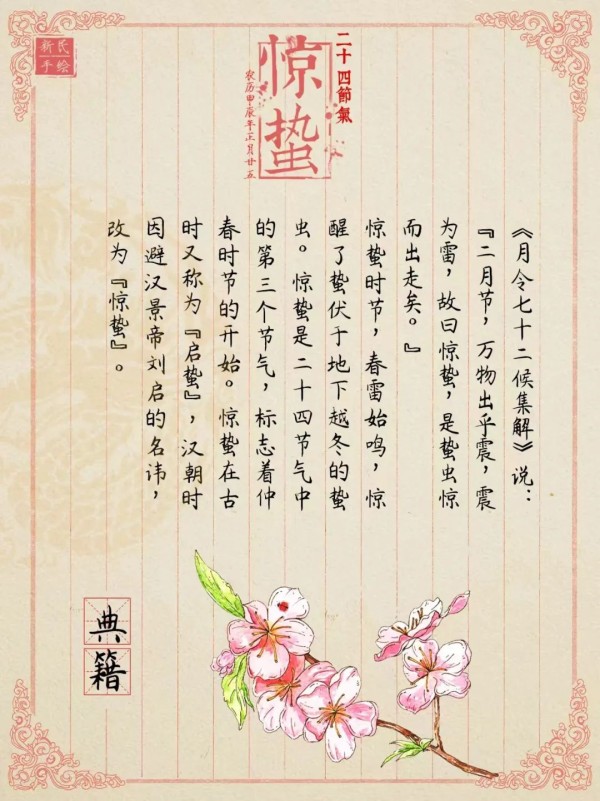 新民
手绘
二十四節氣
惊蛰
农历甲辰年正月廿五
《月令七十二候集解》说：
『二月节，万物出乎震，震
为雷，故曰惊蛰，是蛰虫惊
而出走矣。』
惊蛰时节，春雷始鸣，惊
醒了蛰伏于地下越冬的蛰
虫。惊蛰是二十四节气中
的第三个节气，标志着仲
春时节的开始。惊蛰在古
时又称为『启蛰』，汉朝时
因避汉景帝刘启的名讳，
改为『惊蛰』。
典籍